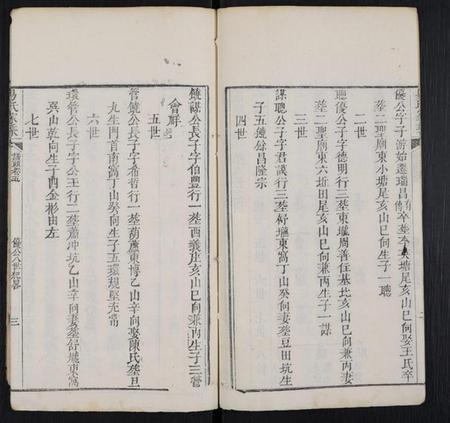 優公字子游始遷瑞昌 卒葬 塘尾亥山巳向娶王氏卒
葬二聖廟東小塘尾亥山巳向生子一聰
二世
聰優公子字德明行三葬東壠周善住基北亥山巳向兼丙妻
葬二聖廟東六坵田尾亥山巳向兼丙生子一謀
三世
謀聰公子字君議行三葬舒壠東窩丁山癸向妻葬豆田坑生
子五鐩餘昌隆宗
四世
鐩謀公長子字伯豐行一葬西 亥山巳向兼丙生子三管
會解
五世
管鐩公長子字希哲行一葬葫蘆東博乙山辛向娶陳氏葬旦
丸生門首南窩丁山癸向生子五環規堅充常
六世
環管公長子字公玉行二葬蕭冲坑乙山辛向妻葬舒壠東窩
巽山乾向生子四金彬由左
七世
優公位下世系
三
二